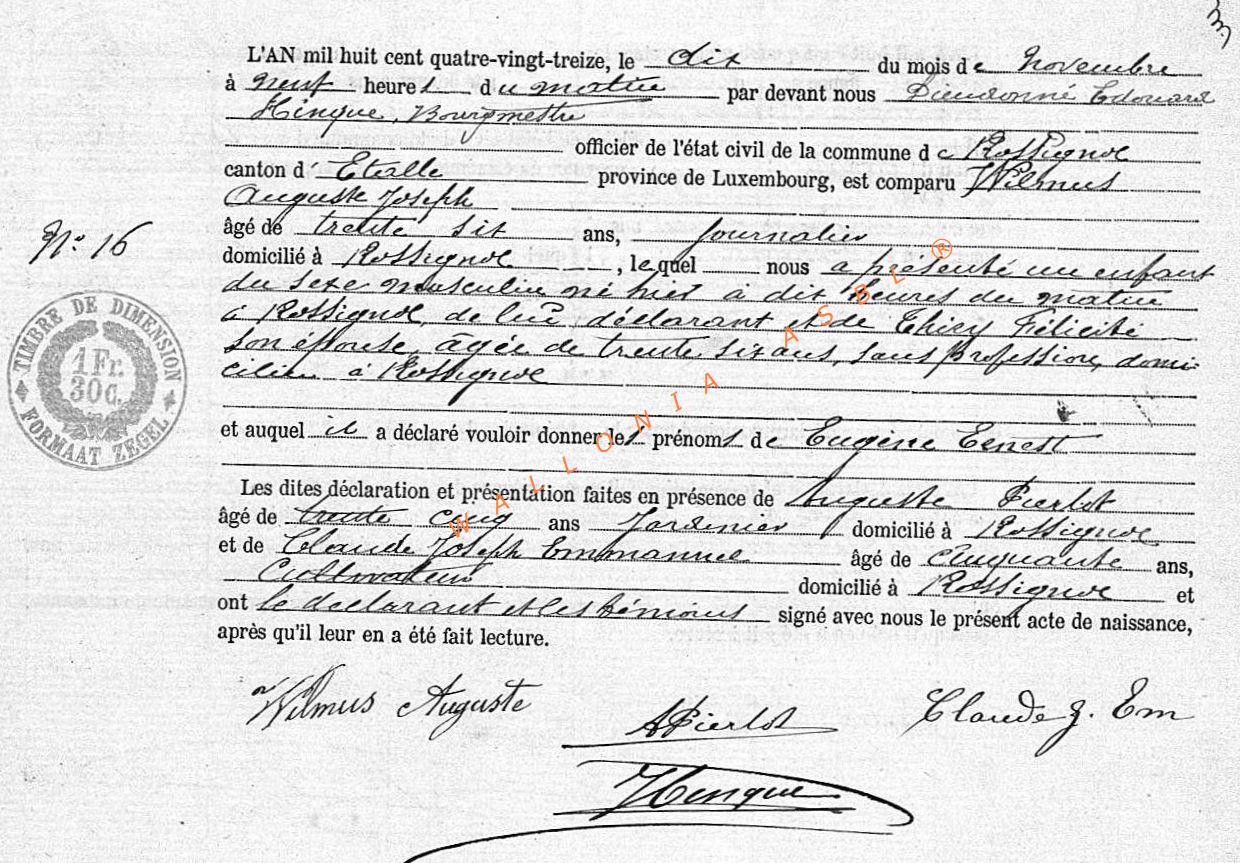 3
L'AN mil huit cent quatre-vingt-treize, le dix du mois de Novembre
à neuf heures du matin par devant nous Dieudonné Edouard
Hinque, Bourgmestre
officier de l'état civil de la commune de Rossignol
canton d'Etalle province de Luxembourg, est comparu Wilmus
Auguste Joseph
âgé de trente six ans, journalier
N° 16
domicilié à Rossignol, lequel nous a présenté un enfant
du sexe masculin né hier à dix heures du matin
à Rossignol, de lui déclarant et de Thiry Félicité
son épouse, âgée de trente six ans, sans profession, domi-
ciliée à Rossignol
TIMBRE DE DIMENSION
1 Fr.
30 C.
FORMAAT ZEGEL
et auquel il a déclaré vouloir donner les prénoms de Eugène Ernest
Les dites déclaration et présentation faites en présence de Auguste Pierlot
âgé de trente cinq ans Jardinier domicilié à Rossignol
et de Claude Joseph Emmanuel âgé de cinquante ans,
Cultivateur domicilié à Rossignol et
ont le déclarant et les témoins signé avec nous le présent acte de naissance,
après qu'il leur en a été fait lecture.
Wilmus Auguste
APierlot
Claude J. Em
Hinque
WALLONIA ASBL ®